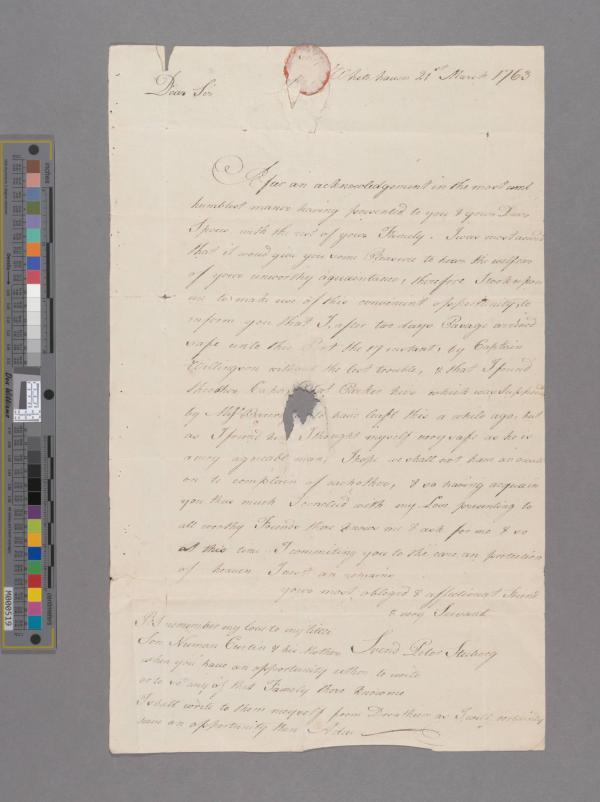 White haven 21st March 1763
Dear Sir
After an acknowledgement in the most and
humblest maner having presented to you & your Dear
Spous with the rest of your Family. I was most
that it would give you some Pleasure to hear the welfare
of your unworthy aquaintance, therefore I took upon
me to make use of this convenient opportunity, to
inform you that I, after two days Pasage arrived
safe unto this Port the 17 instant, by Captain
Wellingson without the lest trouble, & that I found
the other Capn Parker here which was
by to have left this a while ago, but
as I found I thought myself very safe as he is
a very agreable man, I hope we shall not have an
on to complain of eachother, & so having acquain
you thus much I with my Love presenting to
all worthy Friends thare knows me & ask for me & so
at this time I commiting you to the care an protection
of heaven I rest an remains
yours most obliged & affectionat Friend
& very Servand
Svend Peter
PS remember my love to my
Son Numan Custin & his Mother
when you have an opportunity either to write
or to any of that Family thare know me
I shall write to them meyself from as I will certainly
have an opportunity then Adue
inches
centimeters
Don Williams
M000519